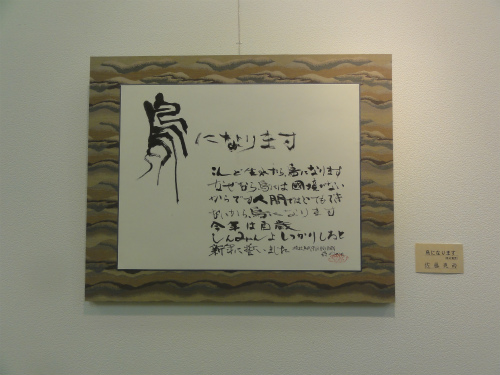 鳥になります
こんど生れたら、鳥になります
なぜなら鳥には国境がない
からです人間ではとてもでき
ないから、鳥になります
今年は酉歳
しんみんよしっかりしろと
新年に誓いました
鳥になります